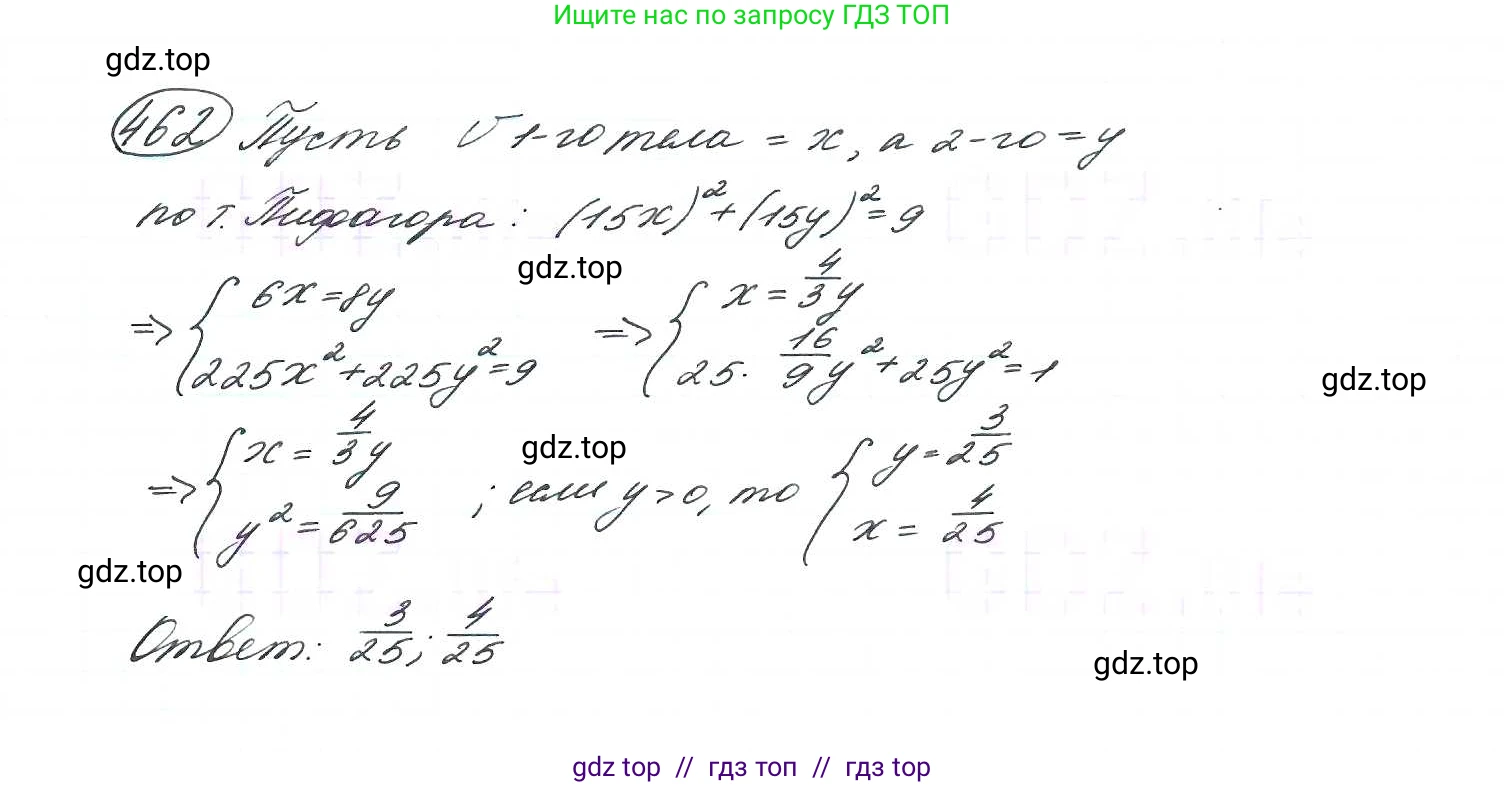 Ищите нас по запросу ГДЗ ТОП
gdz.top
462 Пусть v 1-го тела = x, а 2-го = y
по т. Пифагора: (15x)² + (15y)² = 9
gdz.top
=> { 6x = 8y => { x = 4/3 y
225x² + 225y² = 9 25 · 16/9 y² + 25y² = 1
gdz.top
=> { x = 4/3 y gdz.top { y = 3/25
y² = 9/625 ; если y > 0, то x = 4/25
gdz.top
Ответ: 3/25; 4/25
gdz.top
gdz top // гдз топ // гдз top